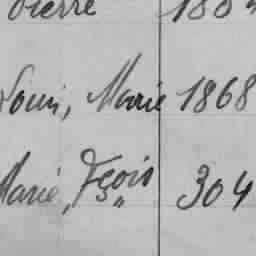 Pierre 180
Louis, Marie 1868
Marie, Fçois 304